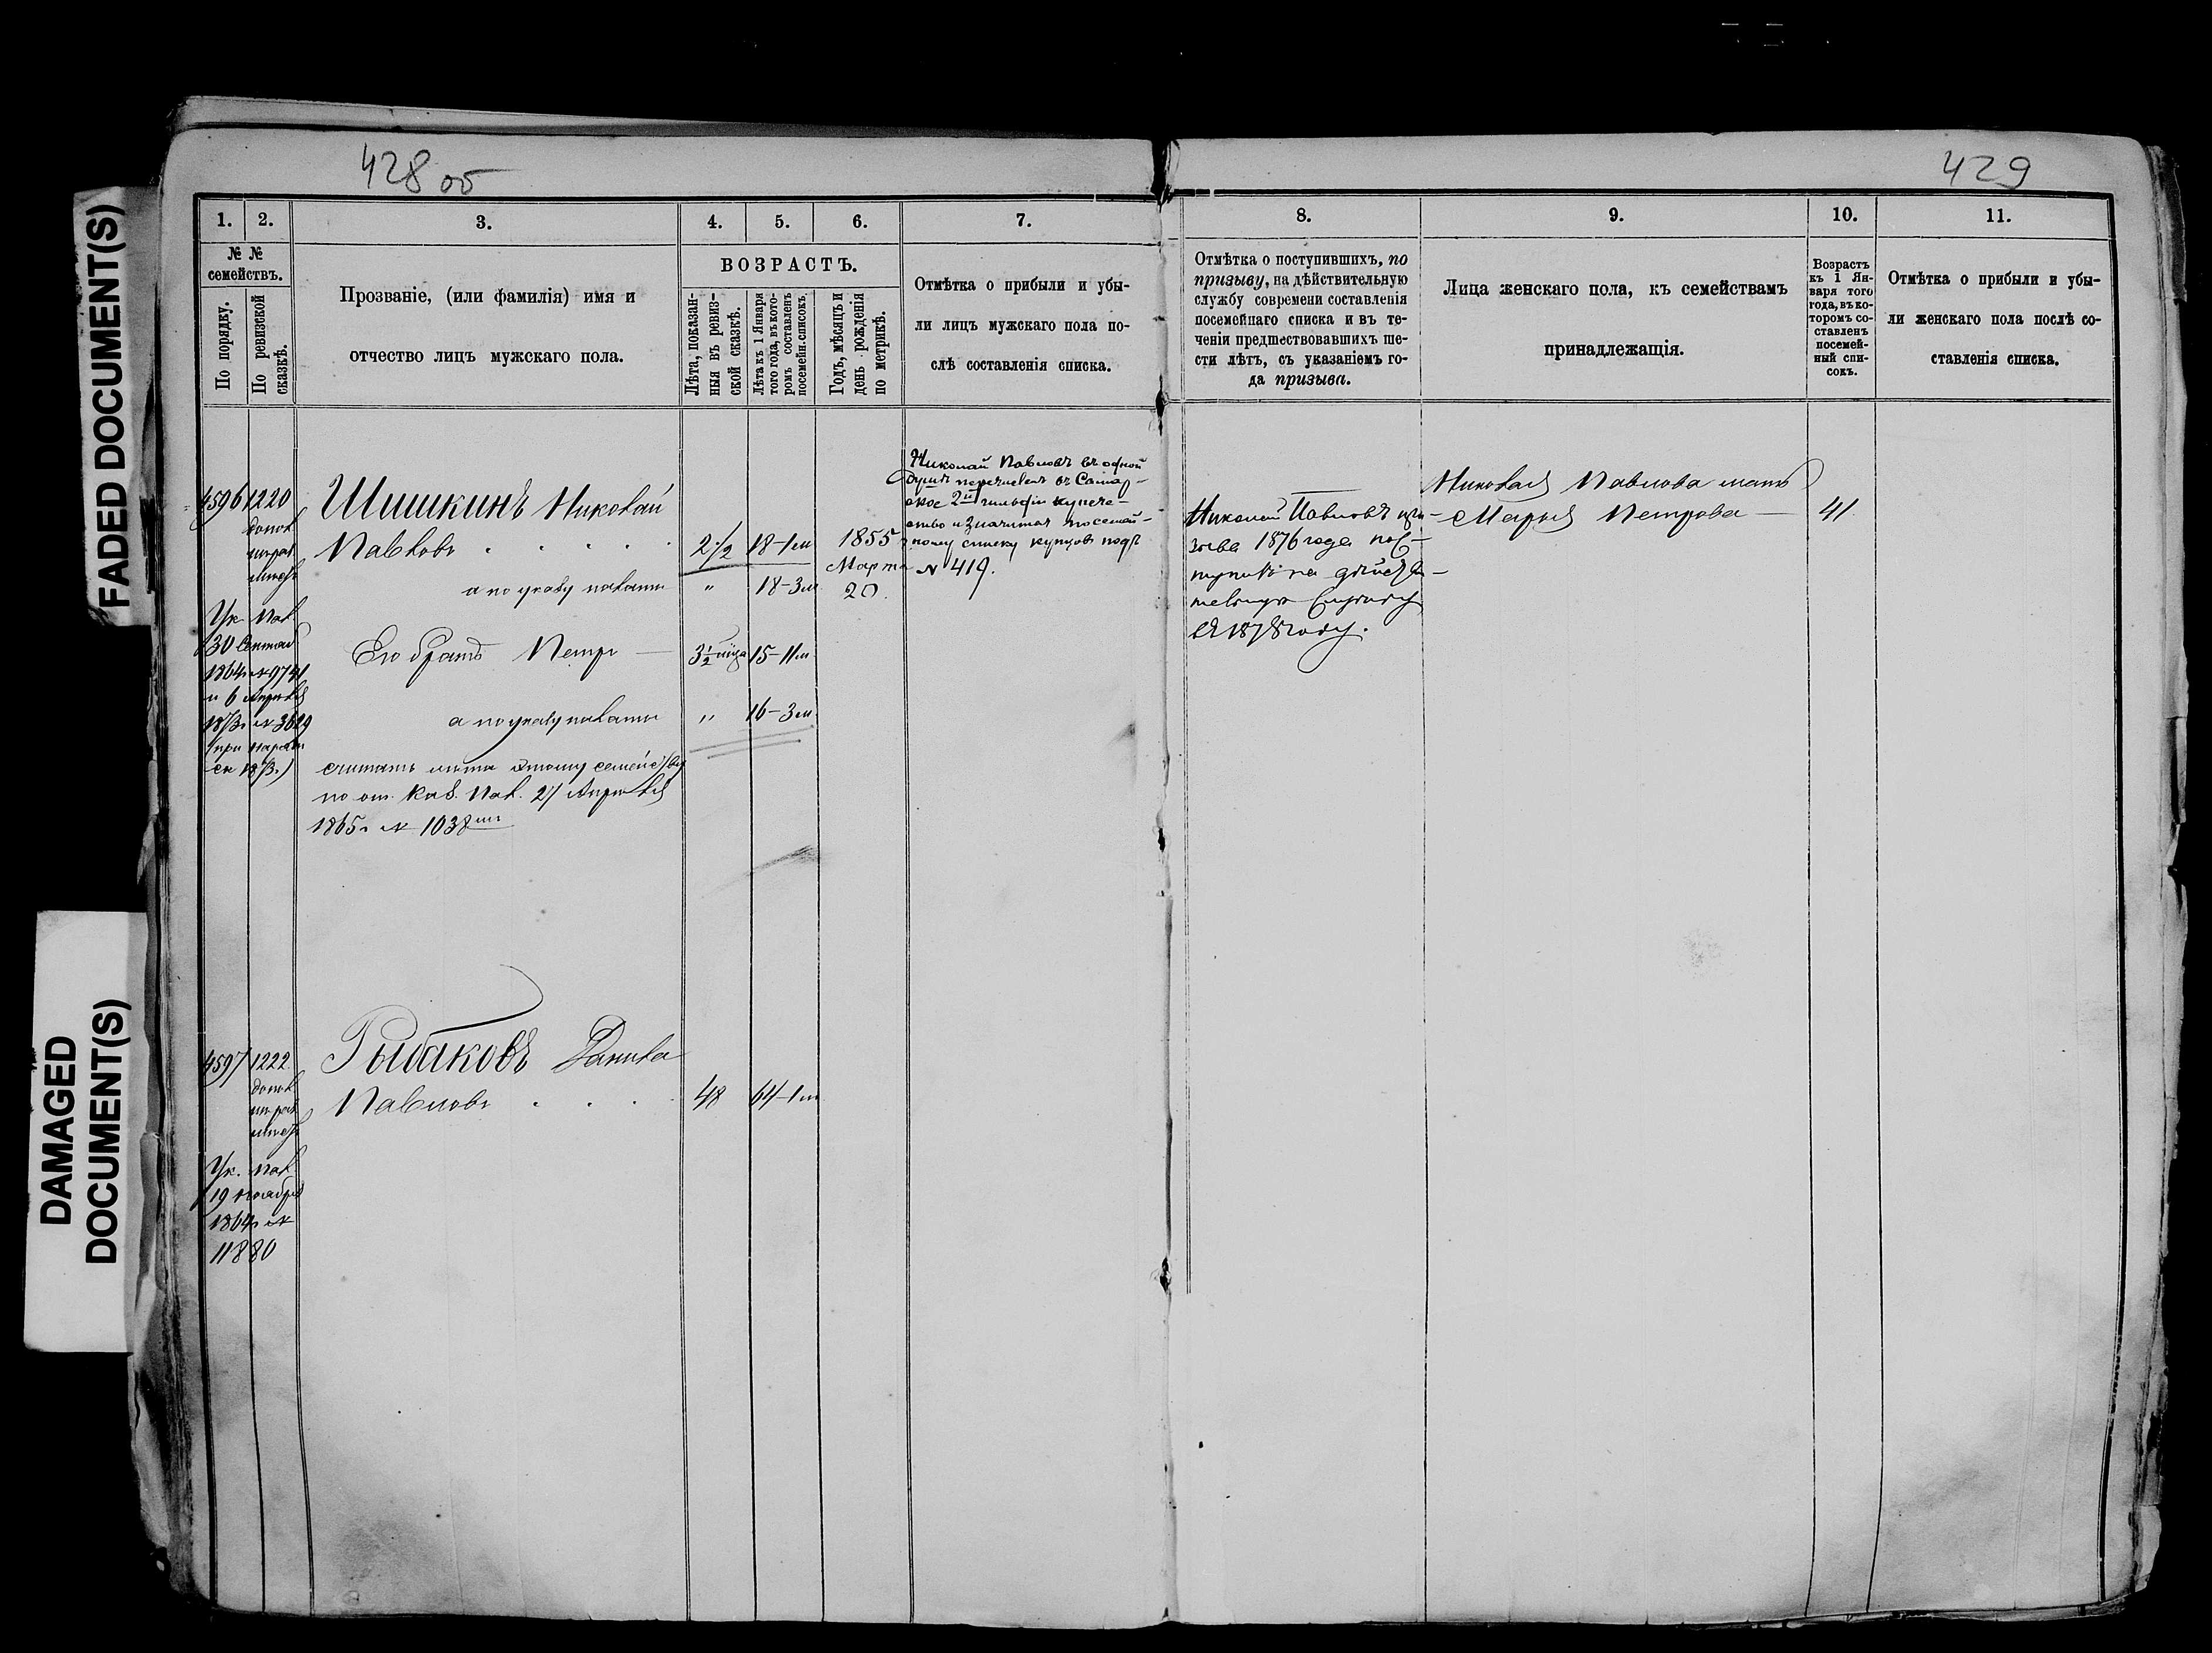 428 об
429
FADED DOCUMENT(S)
DAMAGED
DOCUMENT(S)
1.
2.
3.
4.
5.
6.
7.
8.
9.
10.
11.
№ №
семействъ.
По порядку.
По ревизской
сказкѣ.
Прозваніе, (или фамилія) имя и
отчество лицъ мужскаго пола.
ВОЗРАСТЪ.
Лѣта, показан-
ныя въ ревиз-
ской сказкѣ.
Лѣта къ 1 Января
того года, въ кото-
ромъ составленъ
посемейн.списокъ.
Годъ, мѣсяцъ и
день рожденія
по метрикѣ.
Отмѣтка о прибыли и убы-
ли лицъ мужскаго пола по-
слѣ составленія списка.
Отмѣтка о поступившихъ, по
призыву, на дѣйствительную
службу современи составленія
посемейнаго списка и въ те-
ченіи предшествовавшихъ ше-
сти лѣтъ, съ указаніемъ го-
да призыва.
Лица женскаго пола, къ семействамъ
принадлежащія.
Возрастъ
къ 1 Ян-
варя того
года, въ ко-
торомъ со-
ставленъ
посемей-
ный спи-
сокъ.
Отмѣтка о прибыли и убы-
ли женскаго пола послѣ со-
ставленія списка.
4596
1220
допол
Ук. Пал
30 Сентяб
1864 г № 9741
и 6 Апрѣля
1873 г № 3629
Шишкинъ Николай
Павловъ
2 1/2
18-1 м
1855
Марта
20.
а по указу палаты
"
18-3 м
Его братъ Петръ
3 1/2 мѣца
15-11 м
а по указу палаты
"
16-3 м
считать лѣта этому семейству
по от. Каз. Пал. 27 Апрѣля
1865 г № 1038
Николай Павловъ въ одной
душѣ перечисленъ въ Самар-
ское 2й гильдіи купече-
ство и значится по семей-
ному списку купцовъ подъ
№ 419.
Николай Павловъ при-
зыва 1876 года пос-
тупилъ на дѣйстви-
тельную службу
въ 1878 году.
Николая Павлова мать
Марья Петрова
41
4597
1222
допол
Ук. Пал
19 Ноября
1864 г №
11880
Рыбаковъ Данила
Павловъ
48
64-1 м